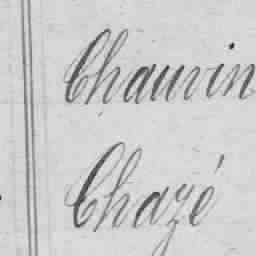 Chauvin
Chazé